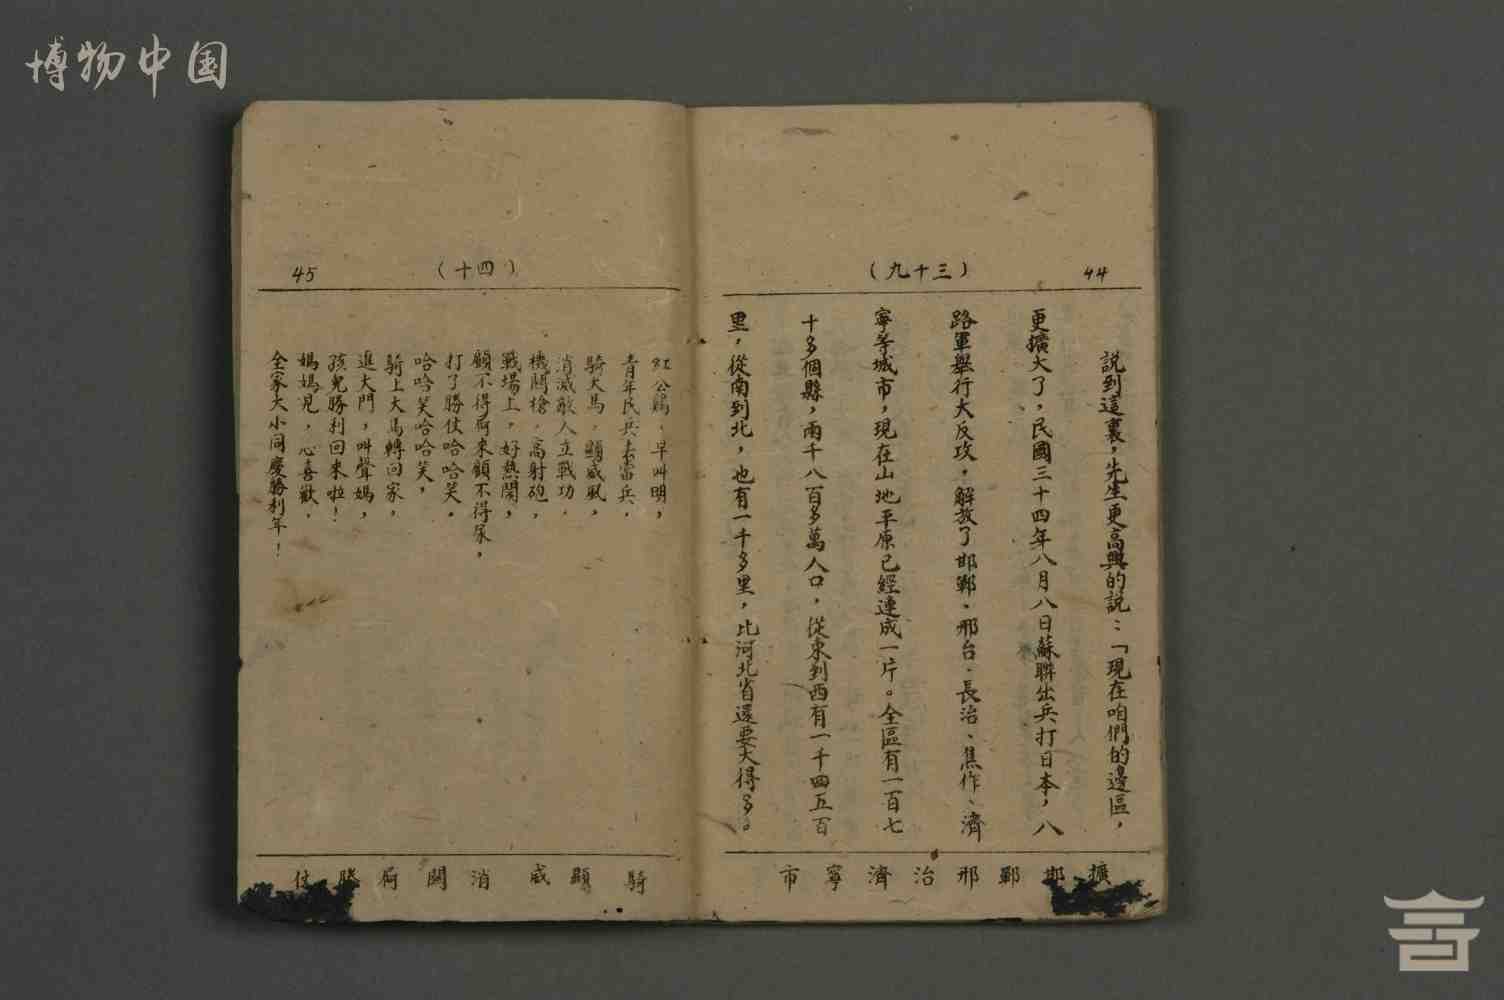 博物中国
44
（三十九）
說到這裏，先生更高興的說：「現在咱們的邊區，
更擴大了，民國三十四年八月八日蘇聯出兵打日本，八
路軍舉行大反攻，解放了邯鄲、邢台、長治、焦作、濟
寧等城市，現在山地平原已經連成一片。全區有一百七
十多個縣，兩千八百多萬人口，從東到西有一千四五百
里，從南到北，也有一千多里，比河北省還要大得多。
擴 邯 鄲 邢 治 濟 寧 市
（四十）
45
紅公鷄，早叫明，
青年民兵去當兵，
騎大馬，顯威風，
消滅敵人立戰功，
機關槍，高射砲，
戰場上，好熱鬧，
顧不得屙來顧不得尿，
打了勝仗哈哈笑。
哈哈笑哈哈笑，
騎上大馬轉回家，
進大門，叫聲媽，
孩兒勝利回來啦！
媽媽見，心喜歡，
全家大小同慶勝利年！
騎 顯 威 消 關 屙 勝 仗